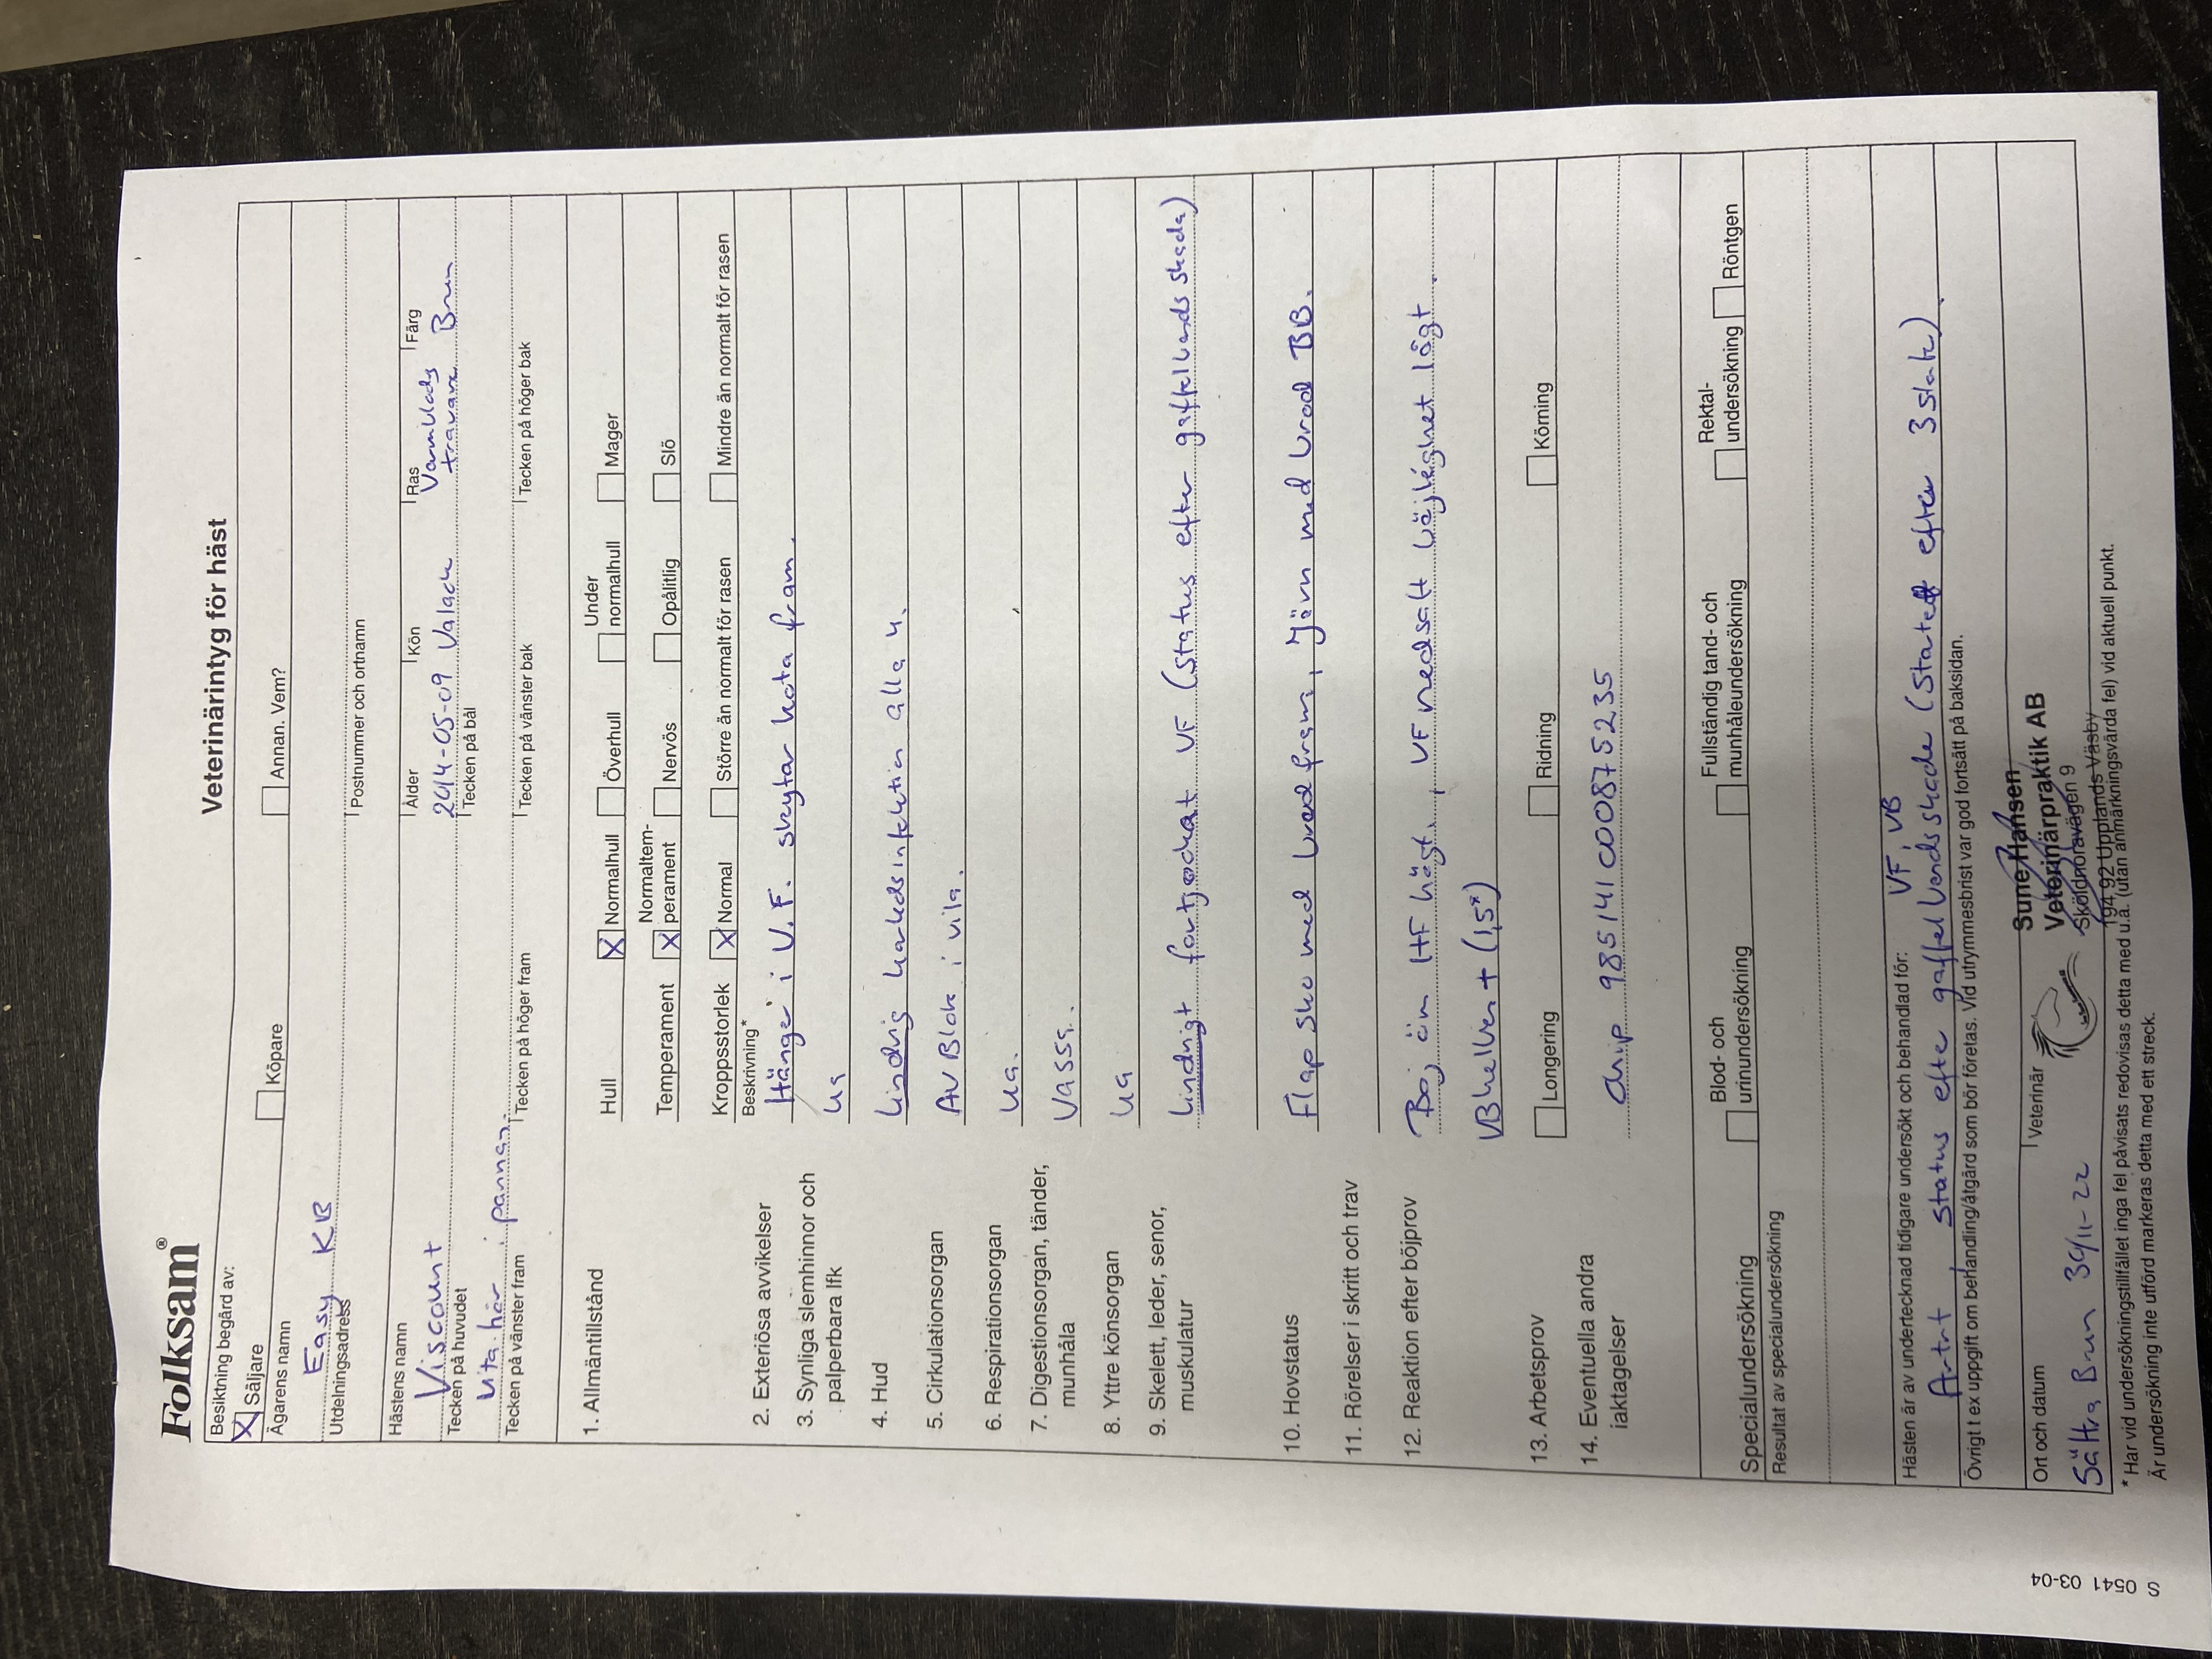 Folksam®
Veterinärintyg för häst
Besiktning begärd av:
X Säljare
Köpare
Annan. Vem?
Ägarens namn
Easy KB
Utdelningsadress
Postnummer och ortnamn
Hästens namn
Ålder
Kön
Ras
Färg
Viscount
2014-05-09
Valack
Varmblods
travare
Brun
Tecken på huvudet
Tecken på bål
Vita hår i pannan.
Tecken på vänster fram
Tecken på höger fram
Tecken på vänster bak
Tecken på höger bak
1. Allmäntillstånd
Hull
X Normalhull
Överhull
Under normalhull
Mager
Temperament
X Normaltem-perament
Nervös
Opålitlig
Slö
Kroppsstorlek
X Normal
Större än normalt för rasen
Mindre än normalt för rasen
Beskrivning*
2. Exteriösa avvikelser
Hänger i V.F. skytar kota fram.
3. Synliga slemhinnor och
palperbara lfk
ua
4. Hud
Lindrig karledsinfektion alla 4.
5. Cirkulationsorgan
AV Block i vila.
6. Respirationsorgan
ua.
7. Digestionsorgan, tänder,
munhåla
Vassa.
8. Yttre könsorgan
ua
9. Skelett, leder, senor,
muskulatur
Lindrigt förtjockat VF (status efter gaffelbandsskada)
10. Hovstatus
Flap sko med bred fram, Järn med brodd BB.
11. Rörelser i skritt och trav
12. Reaktion efter böjprov
Böj än HF högt, VF nedsatt böjlighet lågt.
VB helben + (1,5*)
13. Arbetsprov
Longering
Ridning
Körning
14. Eventuella andra
iakttagelser
Chip 985141000875235
Specialundersökning
Blod- och
urinundersökning
Fullständig tand- och
munhåleundersökning
Rektal-
undersökning
Röntgen
Resultat av specialundersökning
Hästen är av undertecknad tidigare undersökt och behandlad för:
VF, VB
Artrit, status efter gaffelbandsskada (startat efter 3 start).
Övrigt t ex uppgift om behandling/åtgärd som bör företas. Vid utrymmesbrist var god fortsätt på baksidan.
Ort och datum
Veterinär
Sättra Brun 30/11-22
Sune Hansen
Veterinärpraktik AB
Sköldnoravägen 9
194 92 Upplands Väsby
* Har vid undersökningstillfället inga fel påvisats redovisas detta med u.a. (utan anmärkningsvärda fel) vid aktuell punkt.
Är undersökning inte utförd markeras detta med ett streck.
S 0541 03-04